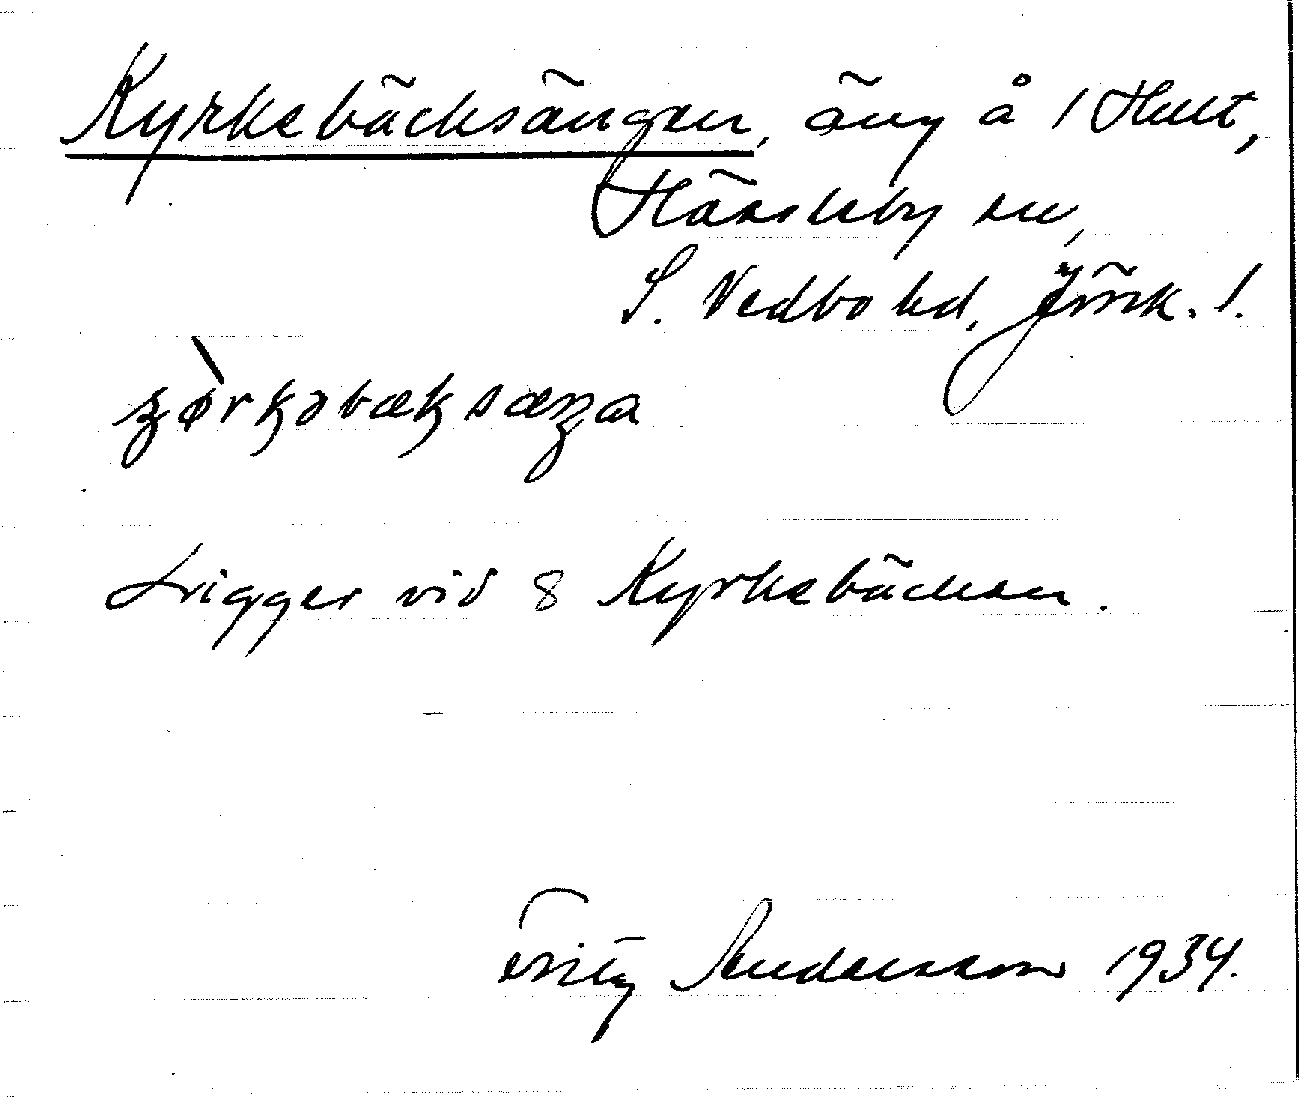 Kyrkebäcksängen, äng å 1 Hult,
Hässleby sn,
S. Vedbo hd, Jönk. l.
Ligger vid 8 Kyrkebäcken.
Fritz Andersson 1934.